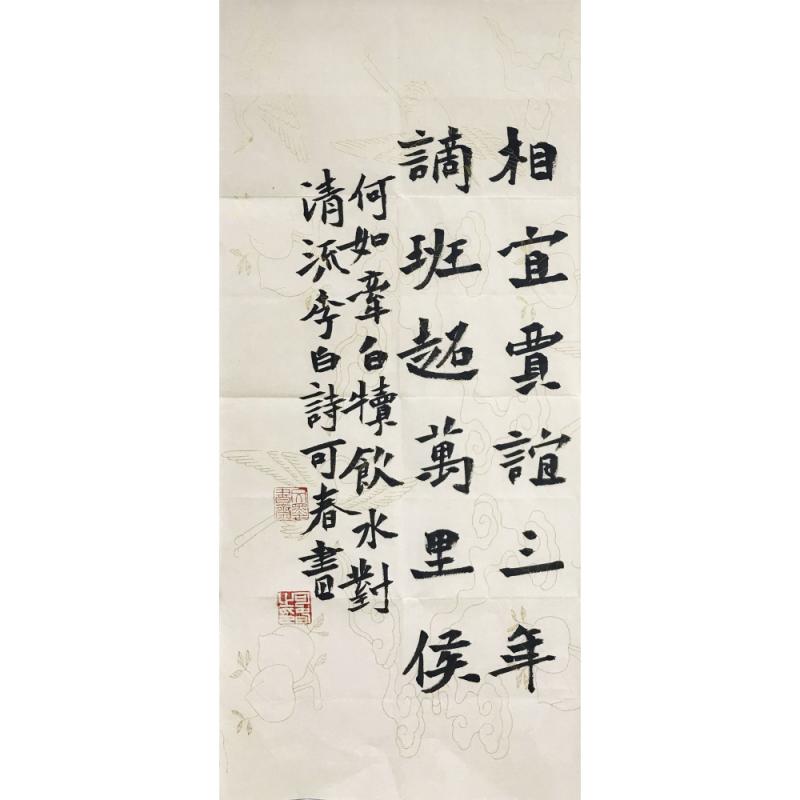 相宜賈誼三年
謫班超萬里侯
何如牽白犢飲水對
清流李白詩可春書